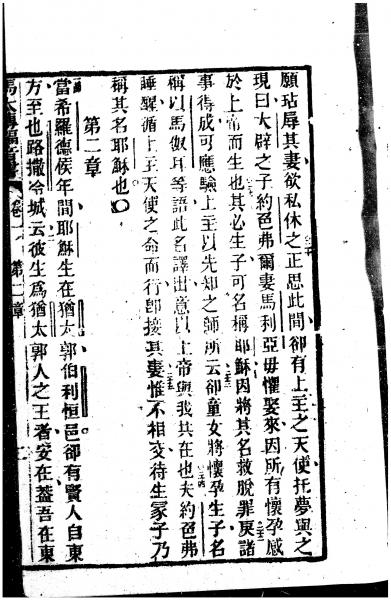 願玷辱其妻欲私休之正思此間卻有上主之天使托夢與之
現曰大辟之子約色弗爾妻馬利亞毋懼娶來因所有懷孕感
於上帝而生也其必生子可名稱耶穌因將其名救脫罪戾諸
事得成可應驗上主以先知之師所云卻童女將懷孕生子名
稱以馬奴耳等語此名譯出意以上帝與我共在也夫約色弗
睡醒循上主天使之命而行卽接其妻惟不相交待生冢子乃
稱其名耶穌也
第二章
當希羅德侯年間耶穌生在猶太郭伯利恒邑卻有賢人自東
方至也路撒冷城云彼生爲猶太郭人之王者安在蓋吾在東
馬太傳福音書 卷一 第二章 二